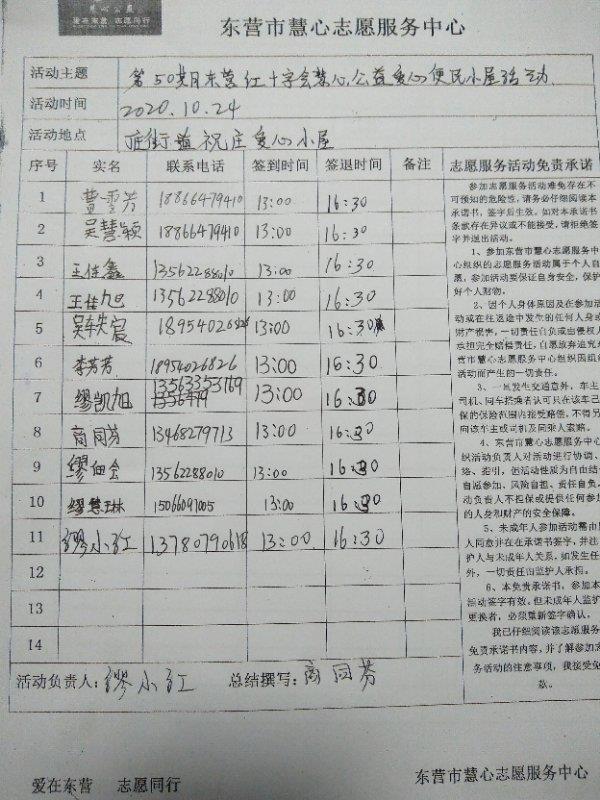 慧心公益
爱在东营 志愿同行
东营市慧心志愿服务中心
活动主题 第50期东营红十字会慧心公益爱心便民小屋活动
活动时间 2020.10.24
活动地点 街道祝庄爱心小屋
序号 实名 联系电话 签到时间 签退时间 备注 志愿服务活动免责承诺
1 曹雪芳 18866479410 13:00 16:30
2 吴慧颖 18866479410 13:00 16:30
3 王佳鑫 13562288010 13:00 16:30
4 王佳旭 13562288010 13:00 16:30
5 吴轶宸 18954026826 13:00 16:30
6 李芳芳 18954026826 13:00 16:30
7 缪凯旭 13563353169 13:00 16:30
8 商同芬 13468279713 13:00 16:30
9 缪佃会 13562288010 13:00 16:30
10 缪慧琳 15066097005 13:00 16:30
11 缪小红 13780790618 13:00 16:30
12
13
14
参加志愿服务活动难免存在不
可预知的危险性，请务必仔细阅读本
承诺书，签字后生效。如对本承诺书
条款存在异议或不能接受，请拒绝签
字并退出活动。
1、参加东营市慧心志愿服务中
心组织的志愿服务活动属于个人自
愿，参加活动要保证自身安全，保护
好个人财物。
2、因个人身体原因及在参加活
动或在往返途中发生的任何人身或
财产损害，一切责任自负或由侵权人
承担完全赔偿责任，自愿放弃追究东
营市慧心志愿服务中心组织因组织
活动而产生的一切责任。
3、一旦发生交通意外，车主、
司机、同车搭乘者认可只在该车已
保的保险范围内接受赔偿，不得另
向该车主或司机及同乘人索赔。
4、东营市慧心志愿服务中心
织活动负责人对活动进行协调、
络、指引，但活动性质为自由结
自愿参加、风险自担、责任自负，
动负责人不担保或提供任何参加
的人身和财产的安全保障。
5、未成年人参加活动需由
人同意并在在承诺书签字，并注
护人与未成年人关系，如发生任
外，一切责任由监护人承担。
6、本免责承诺书，参加本
活动签字有效，但未成年人监护
更换者，必须重新签字确认。
我已仔细阅读该志愿服务
免责承诺书内容，并了解参加志
务活动的注意事项，我接受免
款。
活动负责人：缪小红 总结撰写：商同芬
爱在东营 志愿同行 东营市慧心志愿服务中心